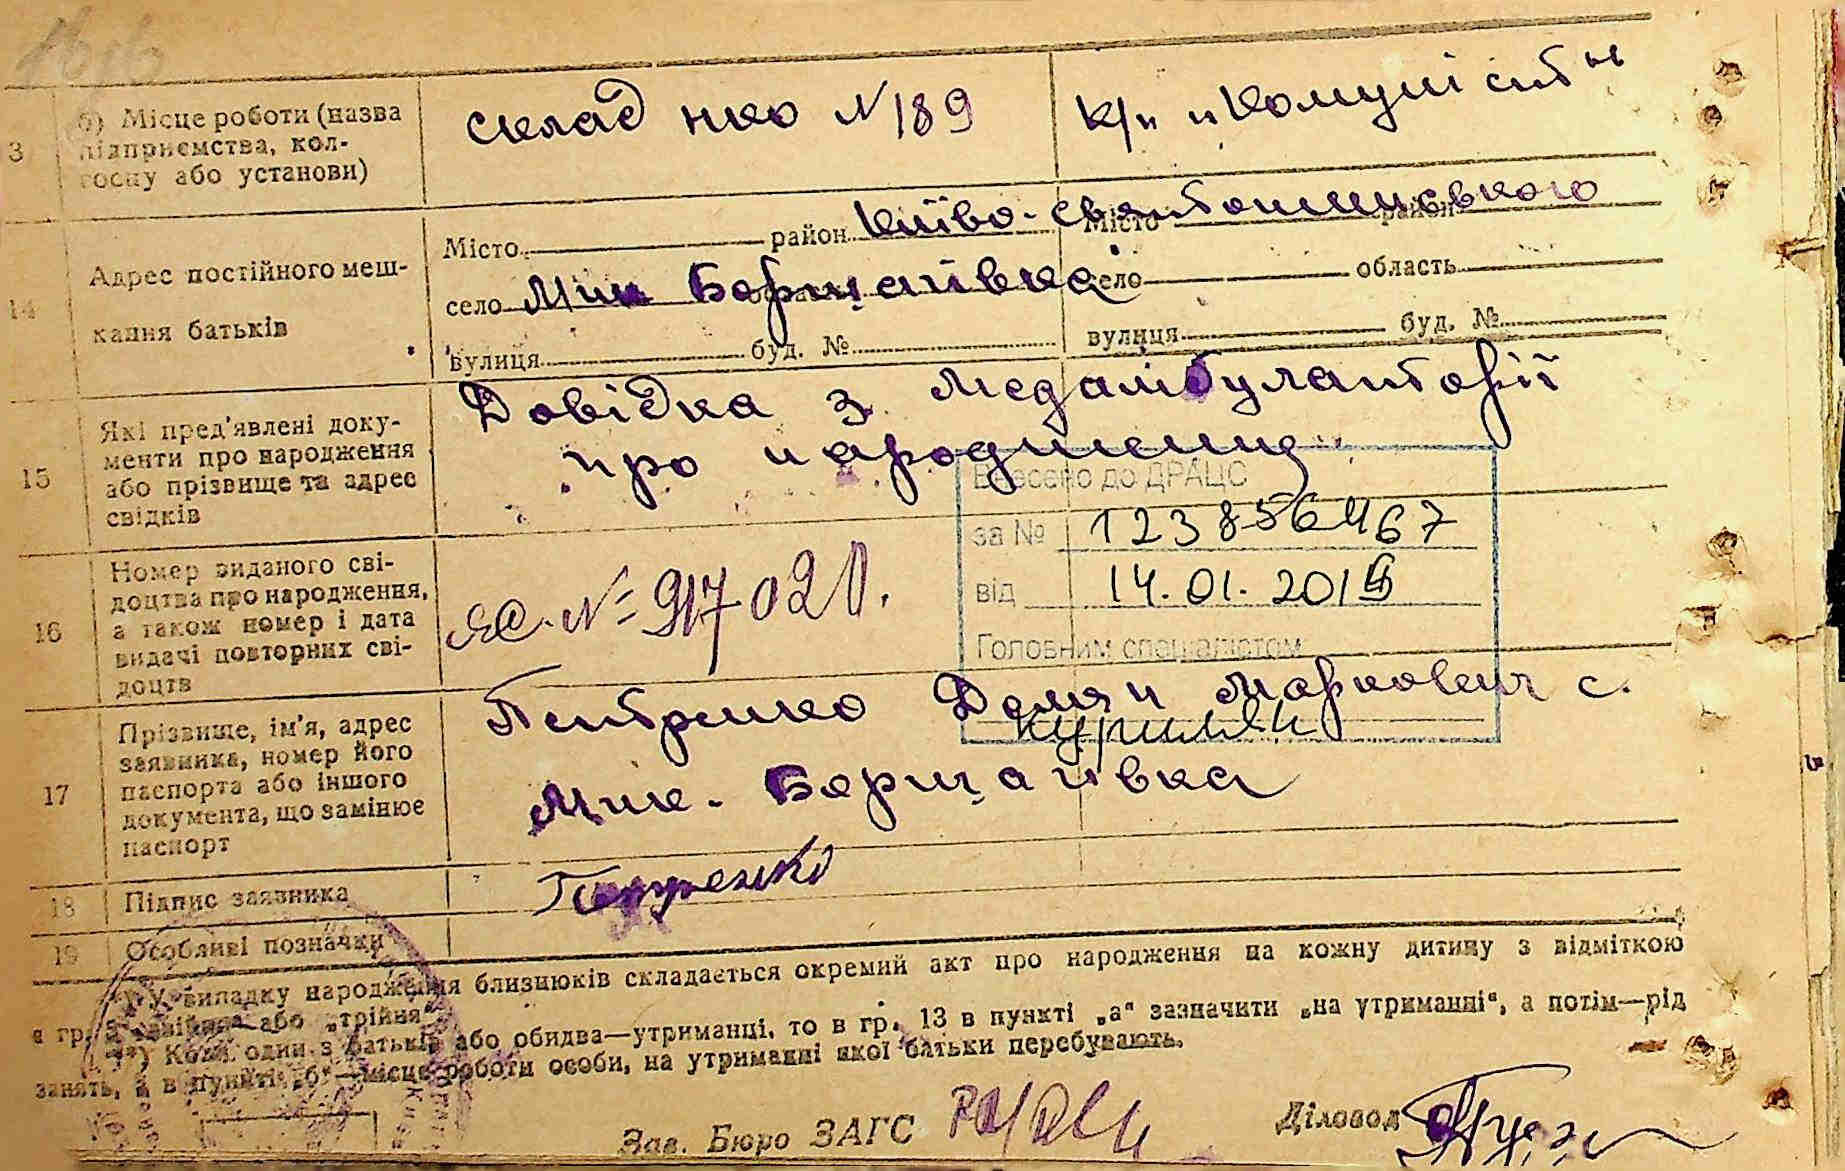 3 б) Місце роботи (назва підприємства, колгоспу або установи) склад нко N 189 к/п „Комуніст"
14 Адрес постійного мешкання батьків
Місто район Київо-Святошинського Місто район
село Мик Борщагівка село область
вулиця буд. № вулиця буд. №
15 Які пред'явлені документи про народження або прізвище та адрес свідків
Довідка з медамбулаторії
про народження
Внесено до ДРАЦС
за № 1238564467
від 14.01.2019
Головним спеціалістом
16 Номер виданого свідоцтва про народження, а також номер і дата видачі повторних свідоцтв
№ 917020
17 Прізвище, ім'я, адрес заявника, номер його паспорта або іншого документа, що замінює паспорт
Петренко Демян Маркович с.
Мик. Борщагівка
18 Підпис заявника Петренко
19 Особливі позначки
*) У випадку народження близнюків складається окремий акт про народження на кожну дитину з відміткою
в гр. 3 „двійня" або „трійня"
**) Коли один з батьків або обидва—утриманці, то в гр. 13 в пункті „а" зазначити „на утриманні", а потім—рід
занять, а в пункті „б"—місце роботи особи, на утриманні якої батьки перебувають.
Зав. Бюро ЗАГС Діловод